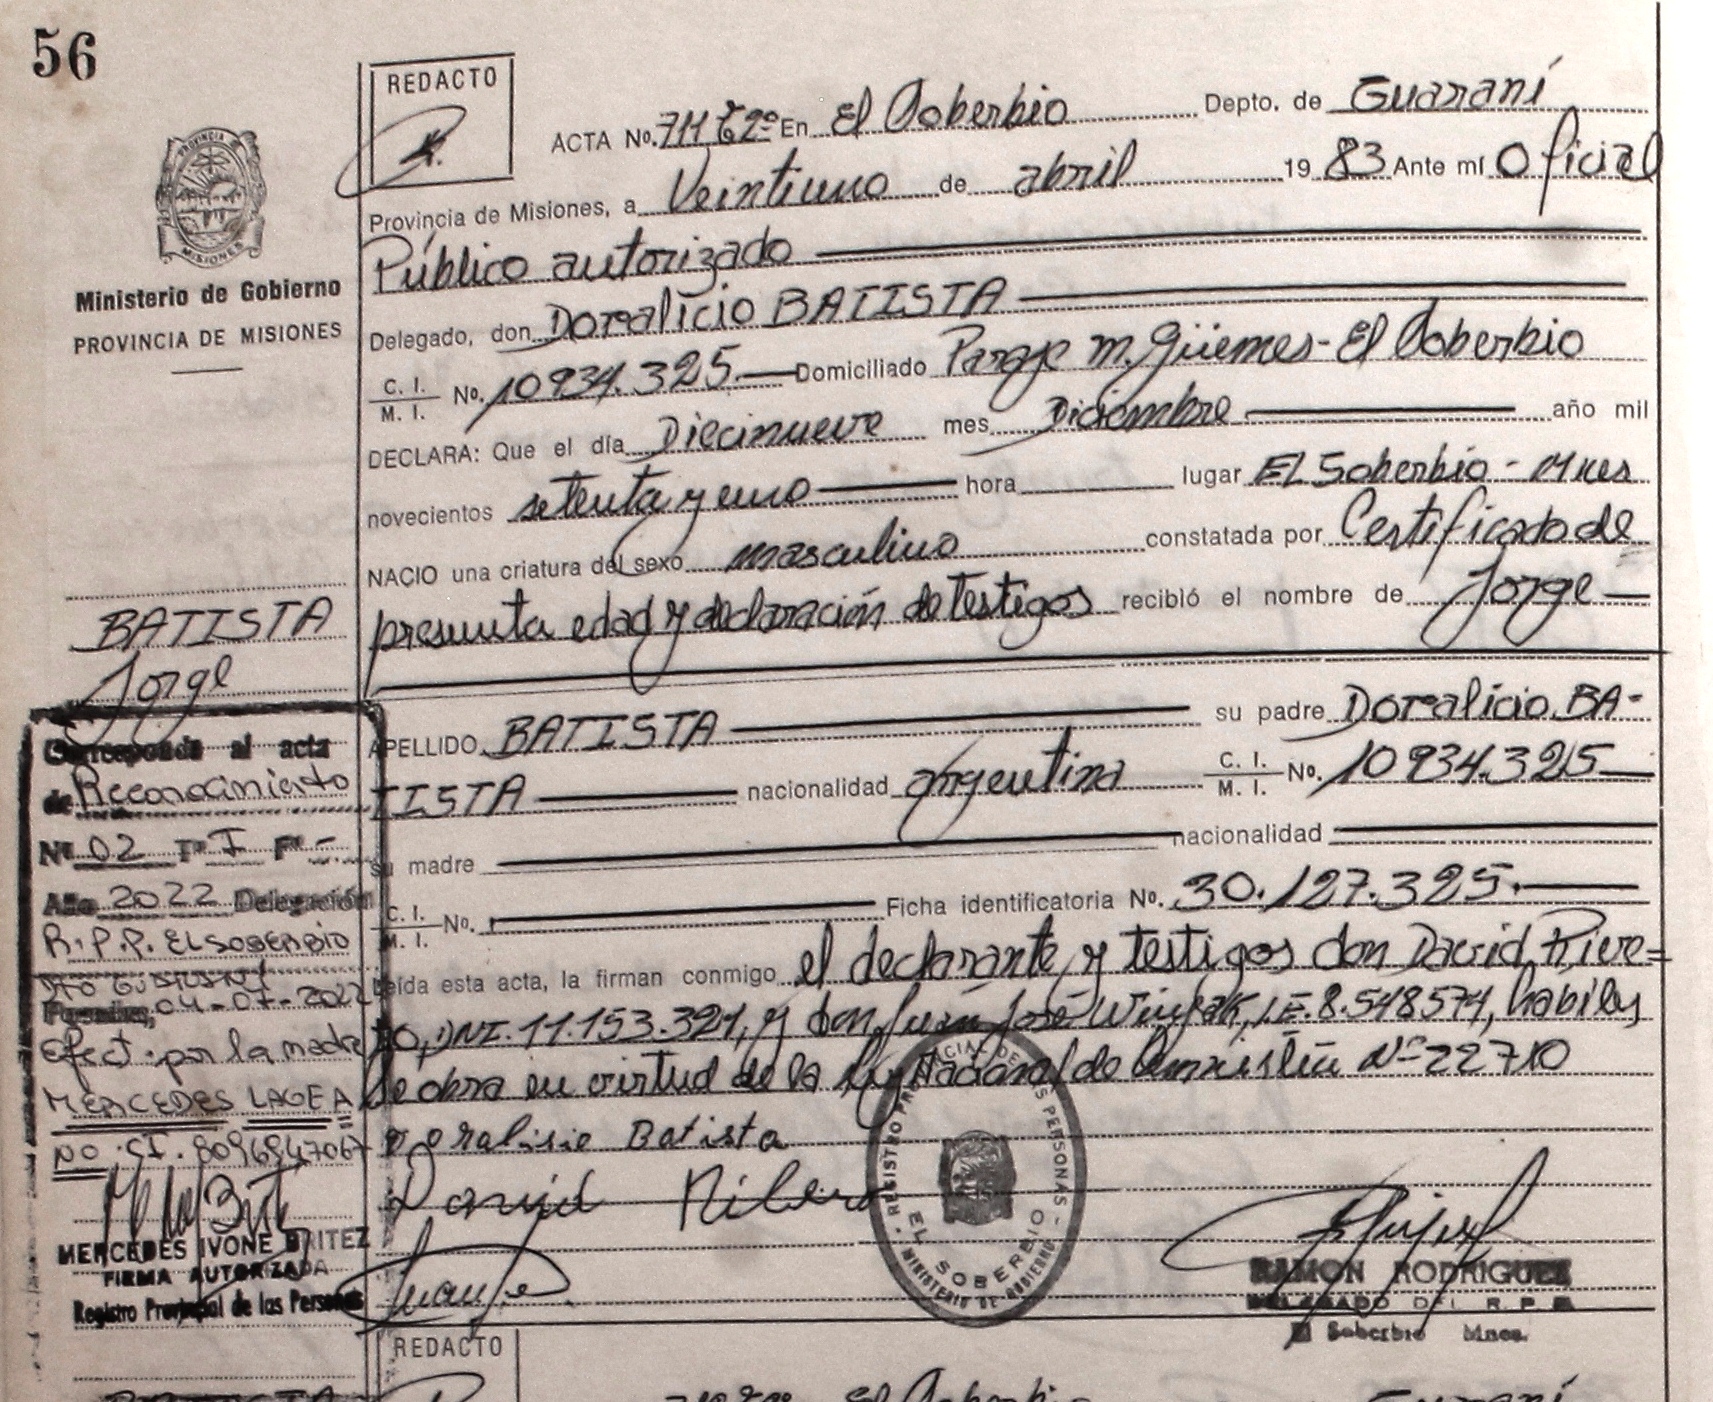 56
REDACTO
ACTA No. 711 Tº2º En El Soberbio Depto. de Guaraní
Provincia de Misiones, a Veintiuno de abril 19 83 Ante mí Oficial
Público autorizado
Delegado, don Doralicio BATISTA
C. I. / M. I. No. 10934.325 Domiciliado Paraje M. Güemes - El Soberbio
DECLARA: Que el día Diecinueve mes Diciembre año mil
novecientos setenta y uno hora lugar El Soberbio - Mnes
NACIO una criatura del sexo masculino constatada por Certificado de
presunta edad y declaración de testigos recibió el nombre de Jorge
APELLIDO BATISTA su padre Doralicio BA-
TISTA nacionalidad argentina C. I. / M. I. No. 10934.325
su madre nacionalidad
C. I. / M. I. No. Ficha identificatoria No. 30.127.325.
Leída esta acta, la firman conmigo el declarante y testigos don David Rive=
ro, DNI. 11.153.321, y don Juan José L.E. 8.548574, habiles
Se obra en virtud de la Ley Nacional de Amnistía Nº 22710
Doralisio Batista
David Ribero
REGISTRO PROVINCIAL DE LAS PERSONAS
EL SOBERBIO
MINISTERIO DE GOBIERNO
RAMON RODRIGUEZ
DELEGADO DEL R. P. P.
El Soberbio Mnes.
PROVINCIA
MISIONES
Ministerio de Gobierno
PROVINCIA DE MISIONES
BATISTA
Jorge
Corresponde al acta
de Reconocimiento
Nº 02 Tº I Fº -
Año 2022 Delegación
R.P.P. EL SOBERBIO
Posadas, 04-07-2022
Efect. por la madre
MERCEDES LAGEA
NO C.I. 8096947067
MERCEDES IVONE BRITEZ
FIRMA AUTORIZADA
Registro Provincial de las Personas
REDACTO
BATISTA
El Soberbio Guaraní